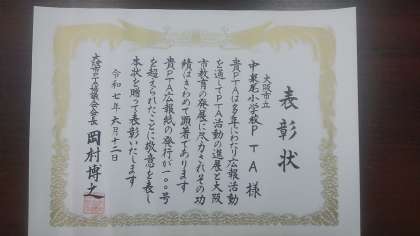 表彰状
大阪市立
中泉尾小学校PTA様
貴PTAは多年にわたり広報活動
を通してPTA活動の進展と大阪
市教育の発展に尽力されその功
績はきわめて顕著であります
貴PTA広報紙の発行が一〇〇号
を超えられたことに敬意を表し
本状を贈って表彰いたします
令和七年六月十二日
大阪市PTA協議会会長 岡村博之